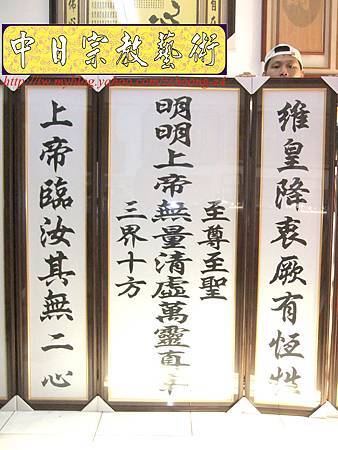 中日宗教藝術
維皇降衷厥有恆性
至尊至聖
明明上帝無量清虛萬靈真宰
三界十方
上帝臨汝其無二心